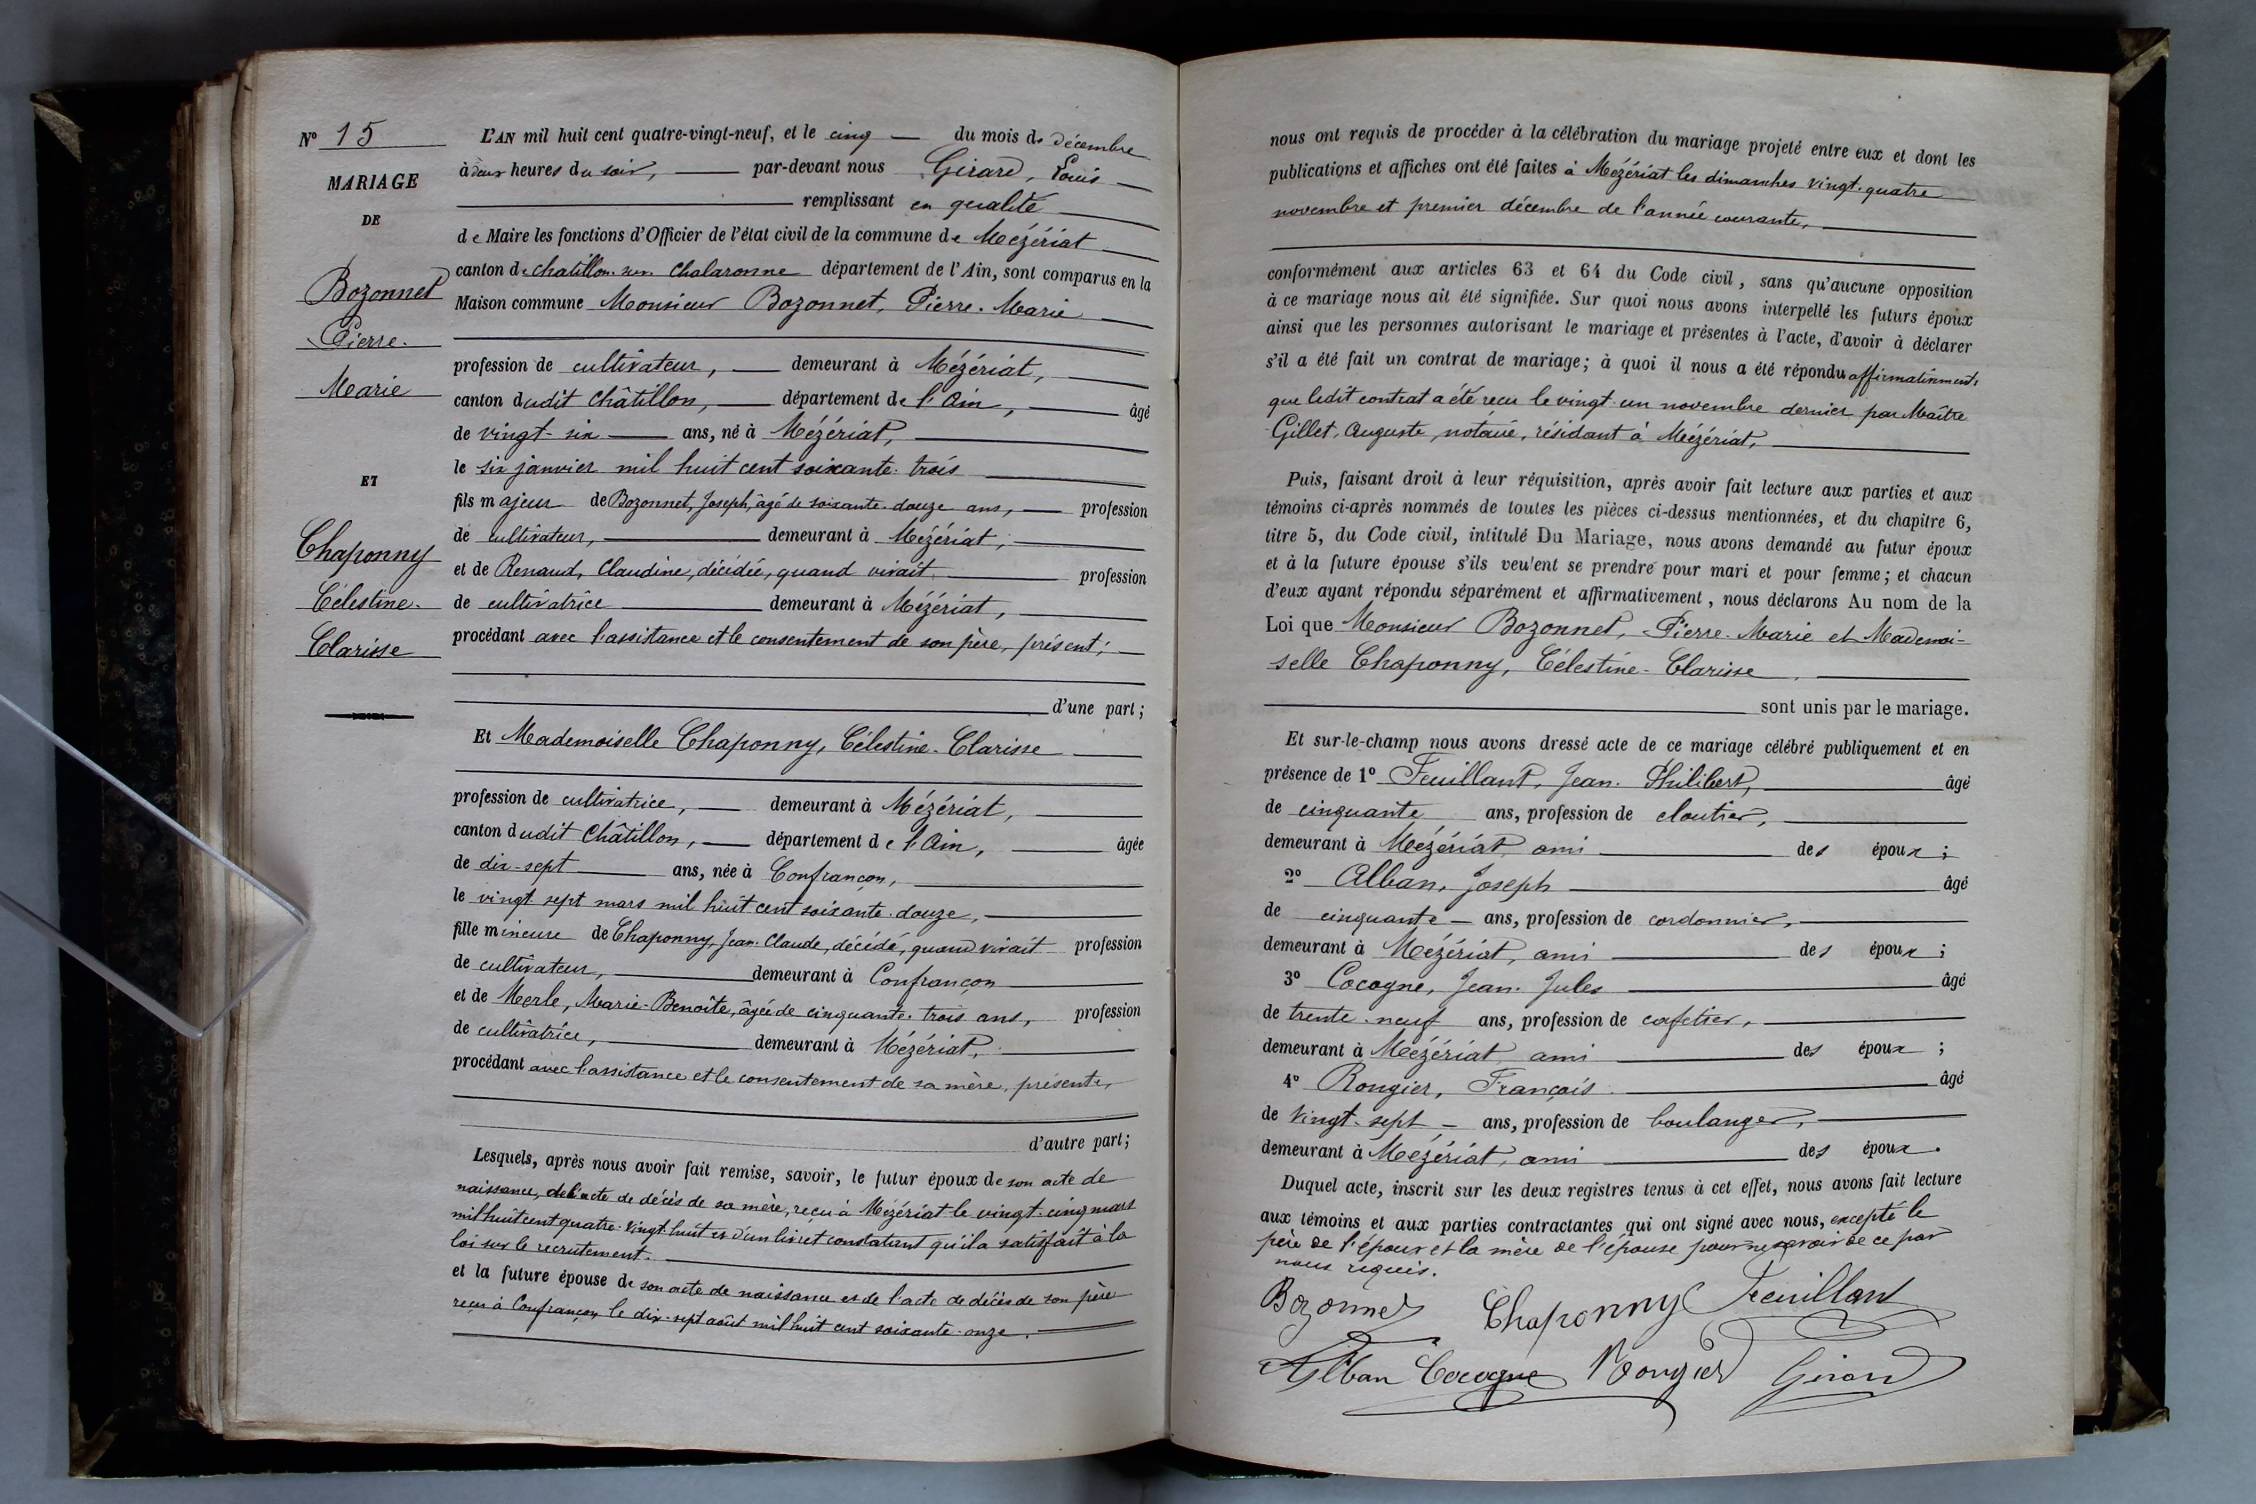 N° 15
MARIAGE
DE
Bozonnet
Pierre-
Marie
ET
Chaponny
Célestine-
Clarisse
L'AN mil huit cent quatre-vingt-neuf, et le cinq du mois de décembre
à deux heures du soir, par-devant nous Girard, Louis
remplissant en qualité
de Maire les fonctions d'Officier de l'état civil de la commune de Mézériat
canton de chatillon-sur-Chalaronne département de l'Ain, sont comparus en la
Maison commune Monsieur Bozonnet, Pierre-Marie
profession de cultivateur, demeurant à Mézériat,
canton dudit Châtillon, département de l'Ain, âgé
de vingt-six ans, né à Mézériat,
le six janvier mil huit cent soixante-trois
fils majeur de Bozonnet, Joseph, âgé de soixante-douze ans, profession
de cultivateur, demeurant à Mézériat,
et de Renaud, Claudine, décédée, quand vivait profession
de cultivatrice demeurant à Mézériat,
procédant avec l'assistance et le consentement de son père, présent;
d'une part;
Et Mademoiselle Chaponny, Célestine-Clarisse
profession de cultivatrice, demeurant à Mézériat,
canton dudit Châtillon, département de l'Ain, âgée
de dix-sept ans, née à Confrançon,
le vingt sept mars mil huit cent soixante-douze,
fille mineure de Chaponny, Jean-Claude, décédé, quand vivait profession
de cultivateur, demeurant à Confrançon
et de Merle, Marie-Benoîte, âgée de cinquante-trois ans, profession
de cultivatrice, demeurant à Mézériat,
procédant avec l'assistance et le consentement de sa mère, présente,
d'autre part;
Lesquels, après nous avoir fait remise, savoir, le futur époux de son acte de
naissance, de l'acte de décès de sa mère, reçu à Mézériat le vingt-cinq mars
mil huit cent quatre-vingt-huit et d'un livret constatant qu'il a satisfait à la
loi sur le recrutement.
et la future épouse de son acte de naissance et de l'acte de décès de son père
reçu à Confrançon le dix-sept août mil huit cent soixante-onze.
nous ont requis de procéder à la célébration du mariage projeté entre eux et dont les
publications et affiches ont été faites à Mézériat les dimanches vingt-quatre
novembre et premier décembre de l'année courante,
conformément aux articles 63 et 64 du Code civil, sans qu'aucune opposition
à ce mariage nous ait été signifiée. Sur quoi nous avons interpellé les futurs époux
ainsi que les personnes autorisant le mariage et présentes à l'acte, d'avoir à déclarer
s'il a été fait un contrat de mariage; à quoi il nous a été répondu affirmativement,
que ledit contrat a été reçu le vingt-un novembre dernier par Maître
Gillet, Auguste, notaire, résidant à Mézériat,
Puis, faisant droit à leur réquisition, après avoir fait lecture aux parties et aux
témoins ci-après nommés de toutes les pièces ci-dessus mentionnées, et du chapitre 6,
titre 5, du Code civil, intitulé Du Mariage, nous avons demandé au futur époux
et à la future épouse s'ils veulent se prendre pour mari et pour femme; et chacun
d'eux ayant répondu séparément et affirmativement, nous déclarons Au nom de la
Loi que Monsieur Bozonnet, Pierre-Marie et Mademoi-
selle Chaponny, Célestine-Clarisse,
sont unis par le mariage.
Et sur-le-champ nous avons dressé acte de ce mariage célébré publiquement et en
présence de 1° Feuillant, Jean-Philibert, âgé
de cinquante ans, profession de cloutier,
demeurant à Mézériat, ami des époux;
2° Alban, Joseph âgé
de cinquante ans, profession de cordonnier,
demeurant à Mézériat, ami des époux;
3° Cocogne, Jean-Jules âgé
de trente-neuf ans, profession de cafetier,
demeurant à Mézériat, ami des époux;
4° Rongier, François âgé
de vingt-sept ans, profession de boulanger,
demeurant à Mézériat, ami des époux.
Duquel acte, inscrit sur les deux registres tenus à cet effet, nous avons fait lecture
aux témoins et aux parties contractantes qui ont signé avec nous, excepté le
père de l'époux et la mère de l'épouse pour ne savoir de ce par
nous requis.
Bozonnet Chaponny Feuillant
Alban Cocogne Rongier Girard